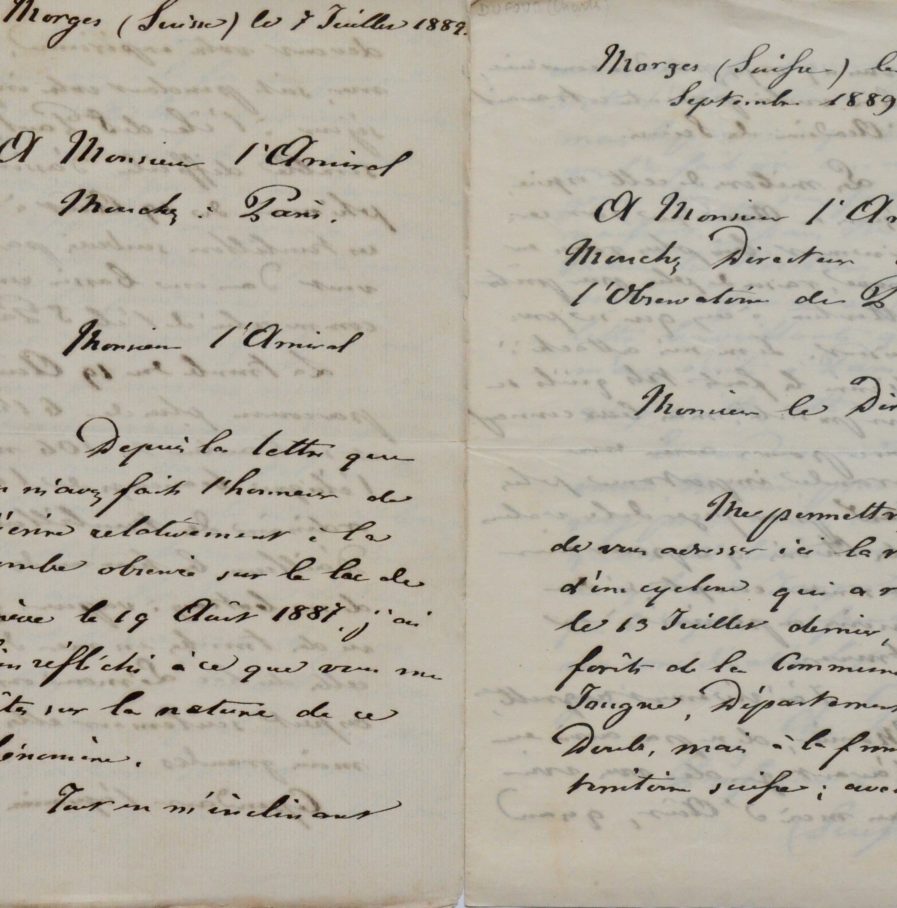 Morges (Suisse) le 7 Juillet 1889.
A Monsieur l'Amiral
Mouchez à Paris.
Monsieur l'Amiral
Depuis la lettre que
m'avez fait l'honneur de
m'écrire relativement à la
trombe observée sur le lac de
Genève le 19 Août 1887, j'ai
bien réfléchi à ce que vous me
dites sur la nature de ce
phénomène.
Tout en m'inclinant
DUFOUR (CHARLES)
Morges (Suisse) le
Septembre 1889
A Monsieur l'Am
Mouchez Directeur
l'Observatoire de P
Monsieur le Dir
Me permettr
de vous adresser ici la r
d'un cyclone qui a r
le 13 Juillet dernier,
forêts de la Commune
Jougne, Département
Doubs, mais à la fron
territoire suisse ; avec